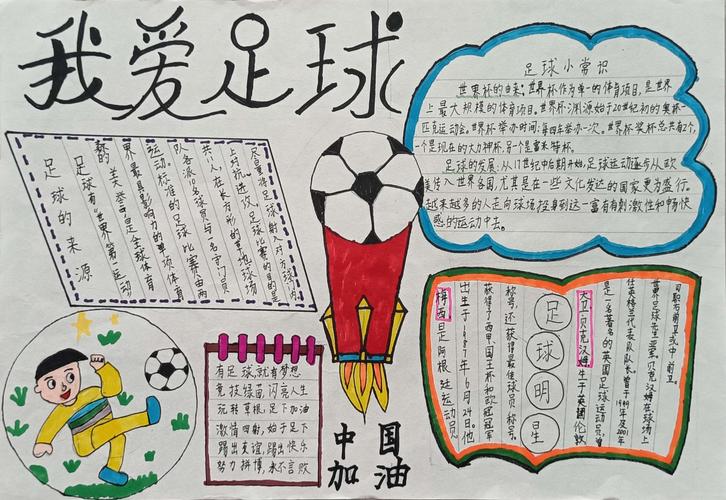 我爱足球
足球的来源
足球有“世界第一运动”
的美誉,是全球体育
界最具影响力的单项体育
运动。标准的足球比赛由两
队各派10名球员与一名守门员
共11人,在长方形的草地球场
上对抗、进攻。足球比赛的目的是
尽量将足球射入对方球门内,
足球小常识
世界杯的由来:世界杯作为单一的体育项目,是世界
上最大规模的体育项目。世界杯渊源始于20世纪初的奥林
匹克运动会。世界杯举办时间:每四年举办一次。世界杯奖杯总共有2个,
一个是现在的大力神杯,另一个是雷米特杯。
足球的发展:从17世纪中后期开始,足球运动逐步从欧
美传入世界各国,尤其是在一些文化发达的国家更为盛行。
越来越多的人走向球场投身到这一富有有刺激性和畅快
感的运动中去。
有足球,就有梦想
竞技绿茵,闪亮人生
玩转草根,足下加油
激情四射,始于足下
踢出友谊,踢出快乐
努力拼搏,永不言败
中国
加油
梅西是阿根廷运动员
出生于1987年6月24日。他
获得了西甲、国王杯和欧冠冠军
称号,还获得最佳球员称号。
足球明星
大卫·贝克汉姆生于英国伦敦
是一名著名的英国足球运动员,曾
任英格兰代表队队长。曾于1999年及2001年
世界足球先生亚军。贝克汉姆在球场上
司职右前卫或中前卫。